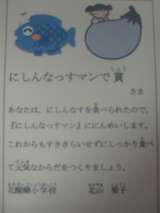 にしんなっすマンで賞
しょう
さま
あなたは、にしんなすを食べられたので、
『にしんなっすマン』ににんめいします。
これからもすききらいせずにしっかり食べ
て元気なからだをつくりましょう。
小学校
北山